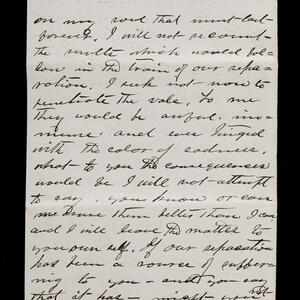 on my soul that must last
forever. I will not recount
the results which would fol-
low in the train of our sepa-
ration. I seek not now to
penetrate the vale. To me
they would be awful, im-
mense and ever tinged
with the color of sadness,
what to you the consequences
would be I will not attempt
to say. you know or can
me them better than I can
and I will leave the matter to
your own self. If our separation
has been a source of suffer-
ing to you - and you say
that it has - might not